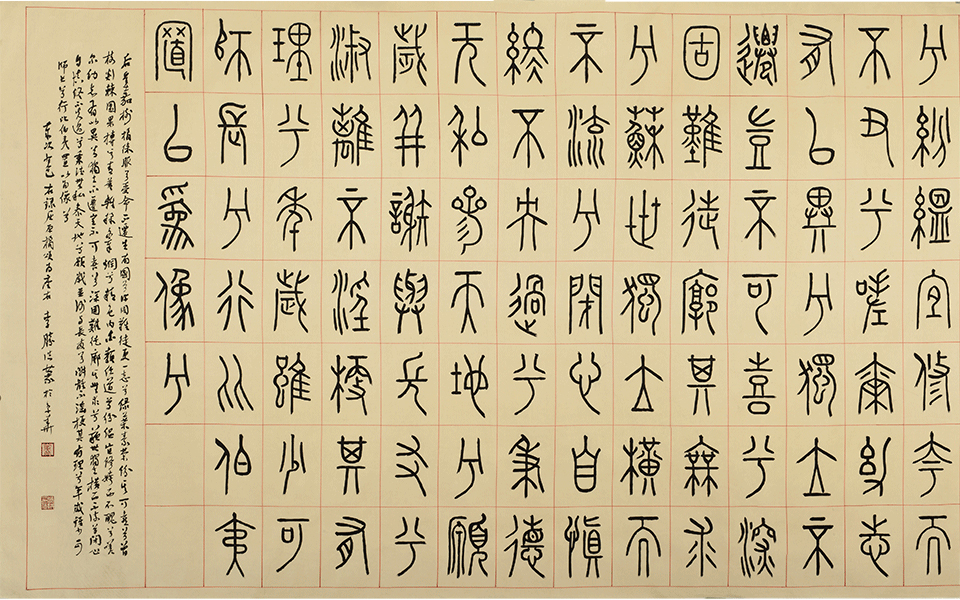 兮紛緼宜修夸而
不丑兮嗟爾幼志
有以異兮獨立不
遷豈不可喜兮深
固難徙廓其無求
兮蘇世獨立橫而
不流兮閉心自慎
終不失過兮秉德
无私參天地兮願
歲并謝與長友兮
淑離不淫梗其有
理兮年歲雖少可
師長兮行比伯夷
置以為像兮
后皇嘉樹橘徠服兮受命不遷生南國兮深固難徙更一志兮綠葉素榮紛其可喜兮曾
枝剡棘圓果摶兮青黃雜糅文章爛兮精色內白類任道兮紛緼宜修姱而不醜兮嗟
尔幼志有以異兮獨立不遷豈不可喜兮深固難徙廓其無求兮蘇世獨立橫而不流兮閉心
自慎終不失過兮秉德無私參天地兮願歲並謝與長友兮淑離不淫梗其有理兮年歲雖少可
師長兮行比伯夷置以為像兮
右錄屈原橘頌